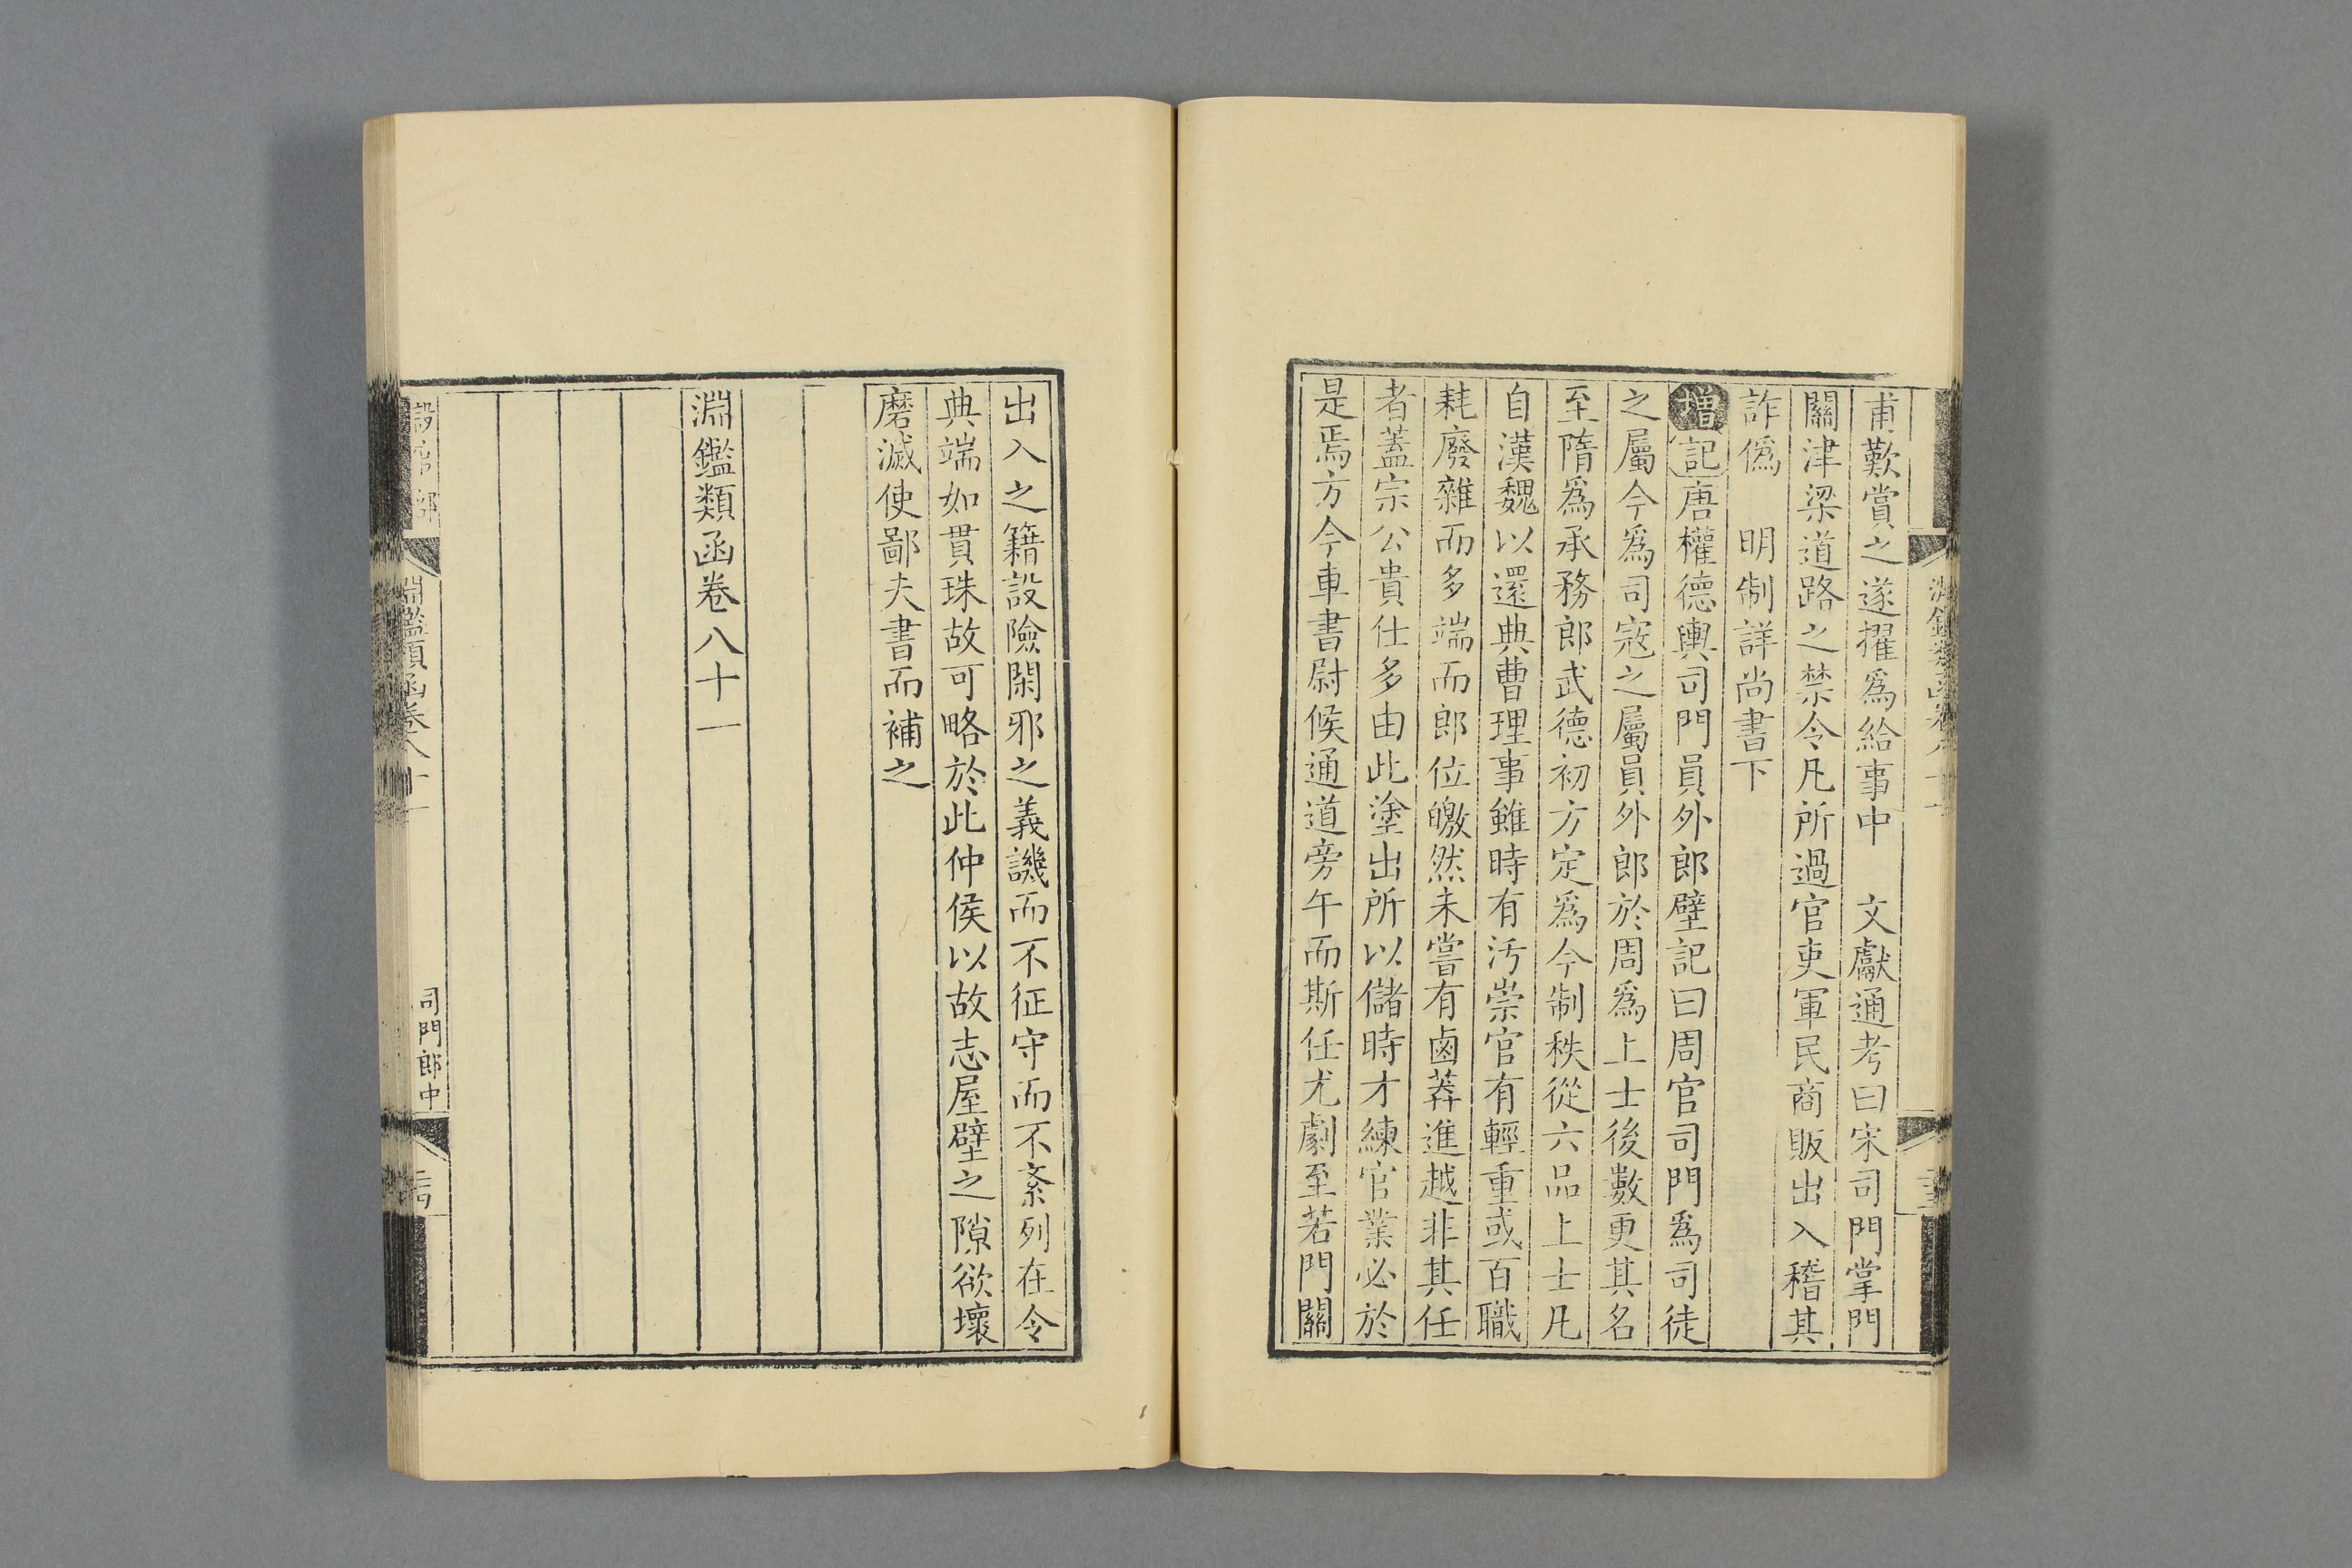 甫歎賞之遂擢爲給事中　文獻通考曰宋司門掌門
關津梁道路之禁令凡所過官吏軍民商販出入稽其
詐僞　明制詳尚書下
增記唐權德輿司門員外郎壁記曰周官司門爲司徒
之屬今爲司寇之屬員外郎於周爲上士後數更其名
至隋爲承務郎武德初方定爲今制秩從六品上士凡
自漢魏以還典曹理事雖時有汚崇官有輕重或百職
耗廢雜而多端而郎位皦然未嘗有鹵莽進越非其任
者蓋宗公貴仕多由此塗出所以儲時才練官業必於
是焉方今車書尉候通道旁午而斯任尤劇至若門關
出入之籍設險閑邪之義譏而不征守而不紊列在令
典端如貫珠故可略於此仲侯以故志屋壁之隙欲壞
磨滅使鄙夫書而補之
淵鑑類函卷八十一
淵鑑類函卷八十一
司門郎中